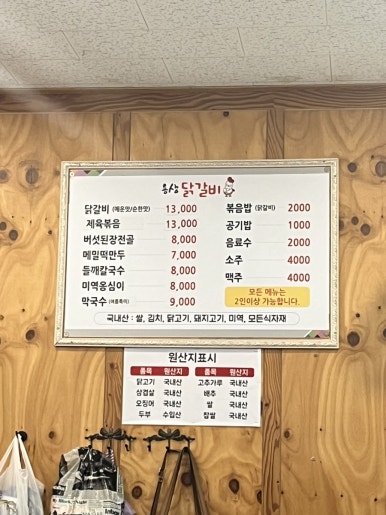 음성 닭갈비
닭갈비 (매운맛/순한맛) 13,000
제육볶음 13,000
버섯된장전골 8,000
메밀떡만두 7,000
들깨칼국수 8,000
미역옹심이 8,000
막국수 (여름특미) 9,000
볶음밥 (닭갈비) 2000
공기밥 1000
음료수 2000
소주 4000
맥주 4000
모든 메뉴는
2인이상 가능합니다.
국내산 : 쌀, 김치, 닭고기, 돼지고기, 미역, 모든식자재
원산지표시
품목 원산지 품목 원산지
닭고기 국내산 고추가루 국내산
삼겹살 국내산 배추 국내산
오징어 국내산 쌀 국내산
두부 수입산 찹쌀 국내산